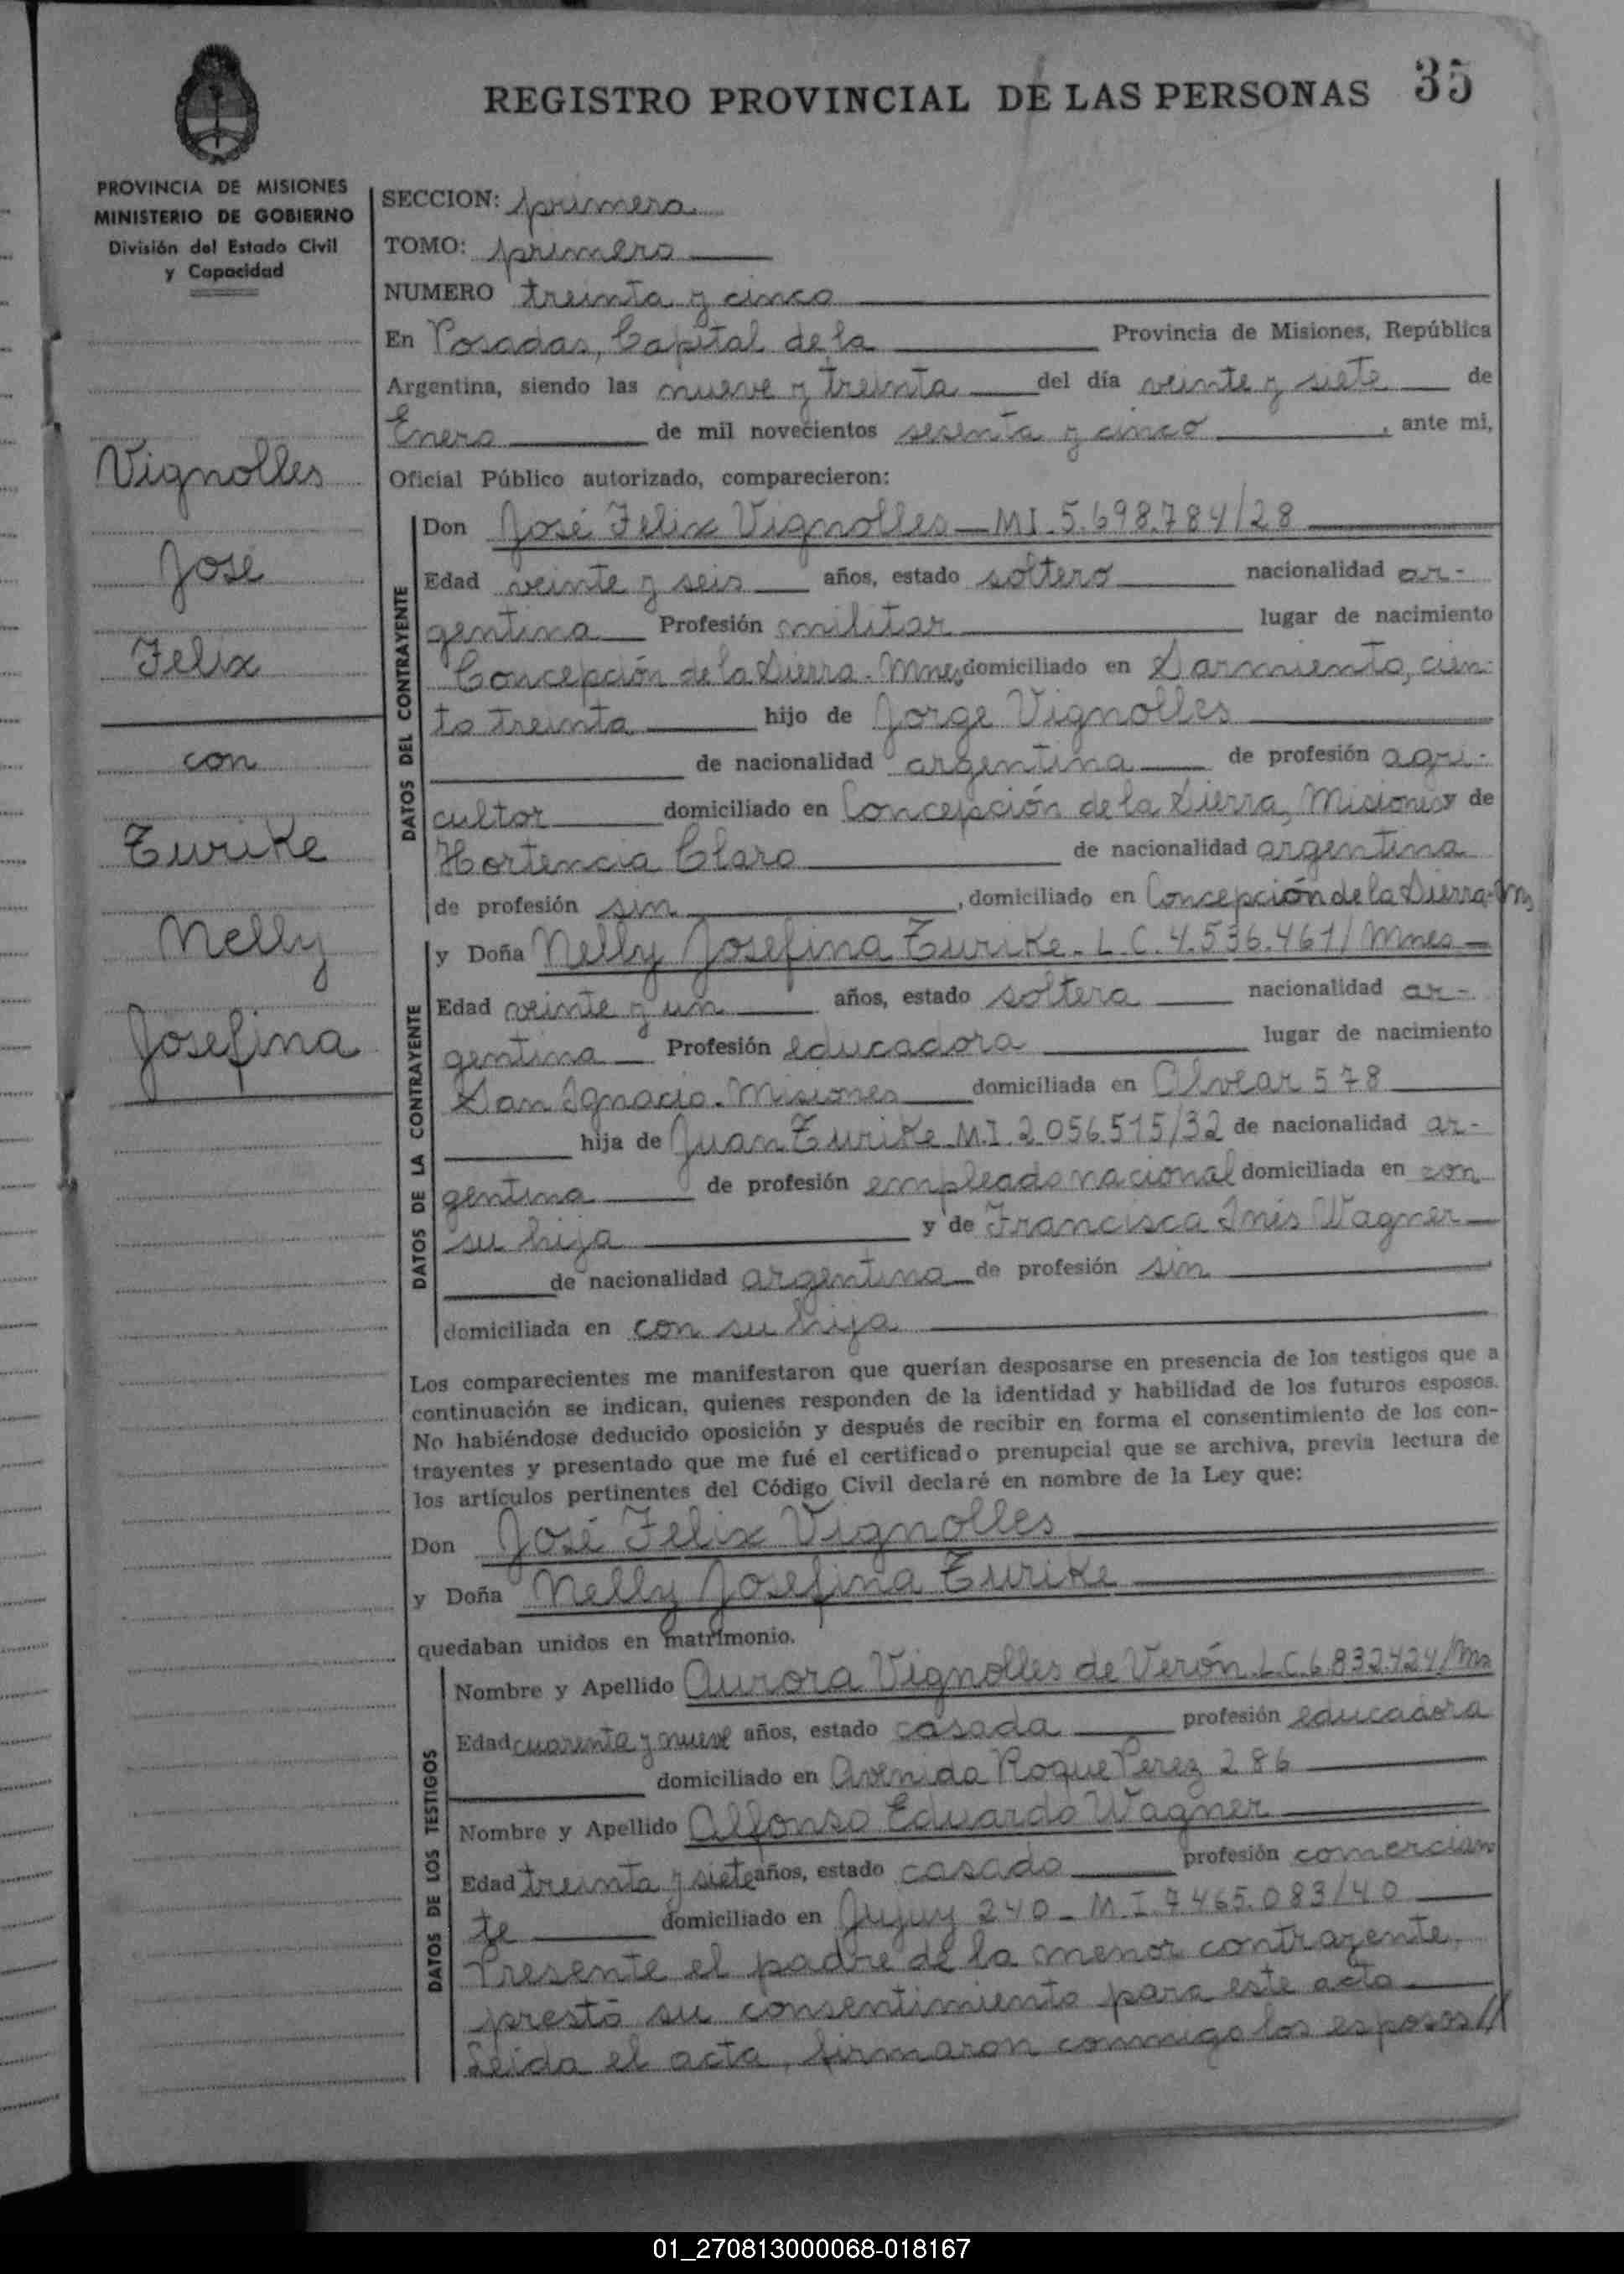 REGISTRO PROVINCIAL DE LAS PERSONAS 35
PROVINCIA DE MISIONES
MINISTERIO DE GOBIERNO
División del Estado Civil
y Capacidad
Vignolles
José
Felix
con
Zurike
Nelly
Josefina
SECCION: primera
TOMO: primero
NUMERO treinta y cinco
En Posadas, Capital de la Provincia de Misiones, República
Argentina, siendo las nueve y treinta del día veinte y siete de
Enero de mil novecientos sesenta y cinco, ante mi,
Oficial Público autorizado, comparecieron:
DATOS DEL CONTRAYENTE
Don José Felix Vignolles - MI. 5.698.784/28
Edad veinte y seis años, estado soltero nacionalidad ar-
gentina Profesión militar lugar de nacimiento
Concepción de la Sierra. Mnes domiciliado en Sarmiento, cien-
to treinta hijo de Jorge Vignolles
de nacionalidad argentina de profesión agri-
cultor domiciliado en Concepción de la Sierra, Misiones y de
Hortencia Claro de nacionalidad argentina
de profesión sin, domiciliado en Concepción de la Sierra-Mns
DATOS DE LA CONTRAYENTE
y Doña Nelly Josefina Zurike - L.C. 4.536.461/Mnes -
Edad veinte y un años, estado soltera nacionalidad ar-
gentina Profesión educadora lugar de nacimiento
San Ignacio. Misiones domiciliada en Alvear 578
hija de Juan Zurike M.I. 2.056.515/32 de nacionalidad ar-
gentina de profesión empleado nacional domiciliada en con
su hija y de Francisca Inés Wagner
de nacionalidad argentina de profesión sin
domiciliada en con su hija
Los comparecientes me manifestaron que querían desposarse en presencia de los testigos que a
continuación se indican, quienes responden de la identidad y habilidad de los futuros esposos.
No habiéndose deducido oposición y después de recibir en forma el consentimiento de los con-
trayentes y presentado que me fué el certificado prenupcial que se archiva, previa lectura de
los artículos pertinentes del Código Civil declaré en nombre de la Ley que:
Don José Felix Vignolles
y Doña Nelly Josefina Zurike
quedaban unidos en matrimonio.
DATOS DE LOS TESTIGOS
Nombre y Apellido Aurora Vignolles de Verón. L.C. 6.832.424/Ms
Edad cuarenta y nueve años, estado casada profesión educadora
domiciliado en Avenida Roque Perez 286
Nombre y Apellido Alfonso Eduardo Wagner
Edad treinta y siete años, estado casado profesión comercian
te domiciliado en Jujuy 240 - M.I. 7.465.083/40
Presente el padre de la menor contrayente,
prestó su consentimiento para este acto
Leida el acta, firmaron conmigo los esposos//
01_270813000068-018167